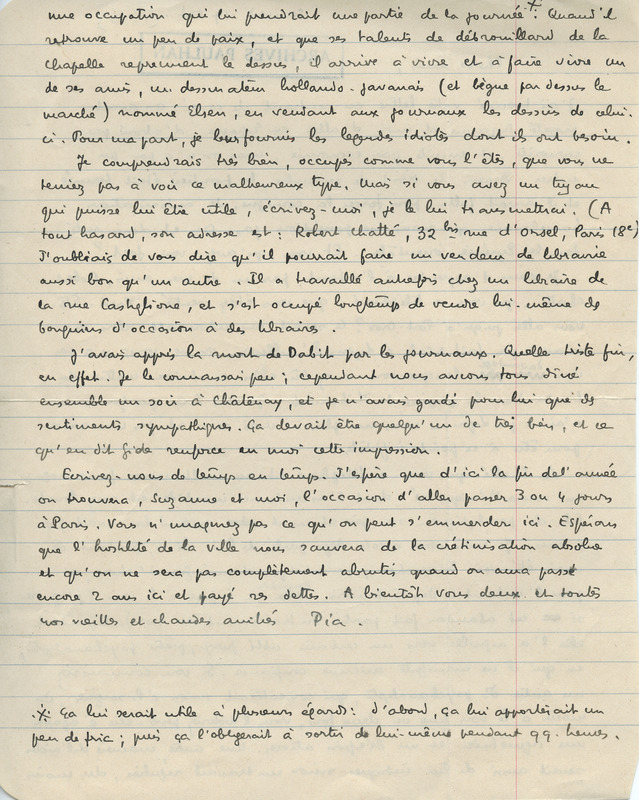 une occupation qui lui prendrait une partie de la journée ※. Quand il
retrouve un peu de paix, et que ses talents de débrouillard de la
chapelle reprennent le dessus, il arrive à vivre et à faire vivre un
de ses amis, un dessinateur hollando-javanais (et bègue par dessus le
marché) nommé Elsen, en vendant aux journaux les dessins de celui-
ci. Pour ma part, je leur fournis les légendes idiotes dont ils ont besoin.
Je comprendrais très bien, occupés comme vous l'êtes, que vous ne
teniez pas à voir ce malheureux type. Mais si vous avez un tuyau
qui puisse lui être utile, écrivez-moi, je le lui transmettrai. (A
tout hasard, son adresse est : Robert Chatté, 32 bis rue d'Orsel, Paris 18e)
J'oubliais de vous dire qu'il pourrait faire un vendeur de librairie
aussi bon qu'un autre. Il a travaillé autrefois chez un libraire de
la rue Castiglione, et s'est occupé longtemps de vendre lui-même des
bouquins d'occasion à des libraires.
J'avais appris la mort de Dabit par les journaux. Quelle triste fin,
en effet. Je le connaissais peu ; cependant nous avions tous dîné
ensemble un soir à Châtenay, et je n'avais gardé pour lui que des
sentiments sympathiques. Ça devait être quelqu'un de très bien, et ce
qu'en dit Gide renforce en moi cette impression.
Ecrivez-nous de temps en temps. J'espère que d'ici la fin de l'année
on trouvera, Suzanne et moi, l'occasion d'aller passer 3 ou 4 jours
à Paris. Vous n'imaginez pas ce qu'on peut s'emmerder ici. Espérons
que l'hostilité de la ville nous sauvera de la crétinisation absolue
et qu'on ne sera pas complètement abrutis quand on aura passé
encore 2 ans ici et payé ses dettes. A bientôt vous deux et toutes
nos vieilles et chaudes amitiés Pia.
※ Ça lui serait utile à plusieurs égards : d'abord, ça lui apporterait un
peu de fric ; puis ça l'obligerait à sortir de lui-même pendant qq. heures.